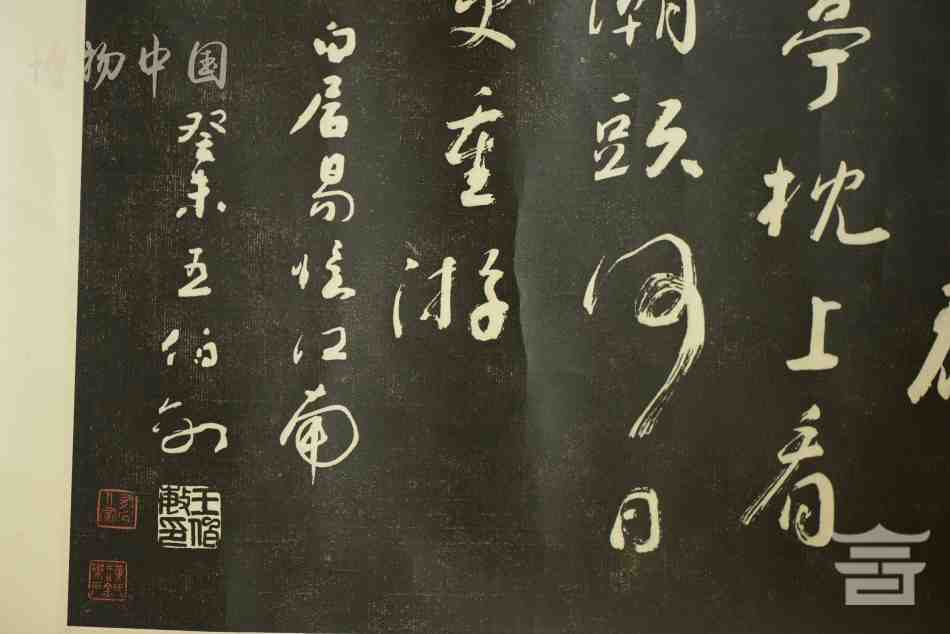 亭枕上看
潮頭何日
更重游
白居易憶江南
癸未王伯敏
王伯敏印
博物中国